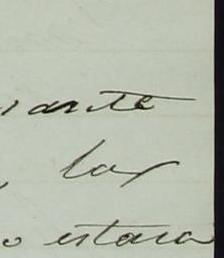 ante
las
o estara